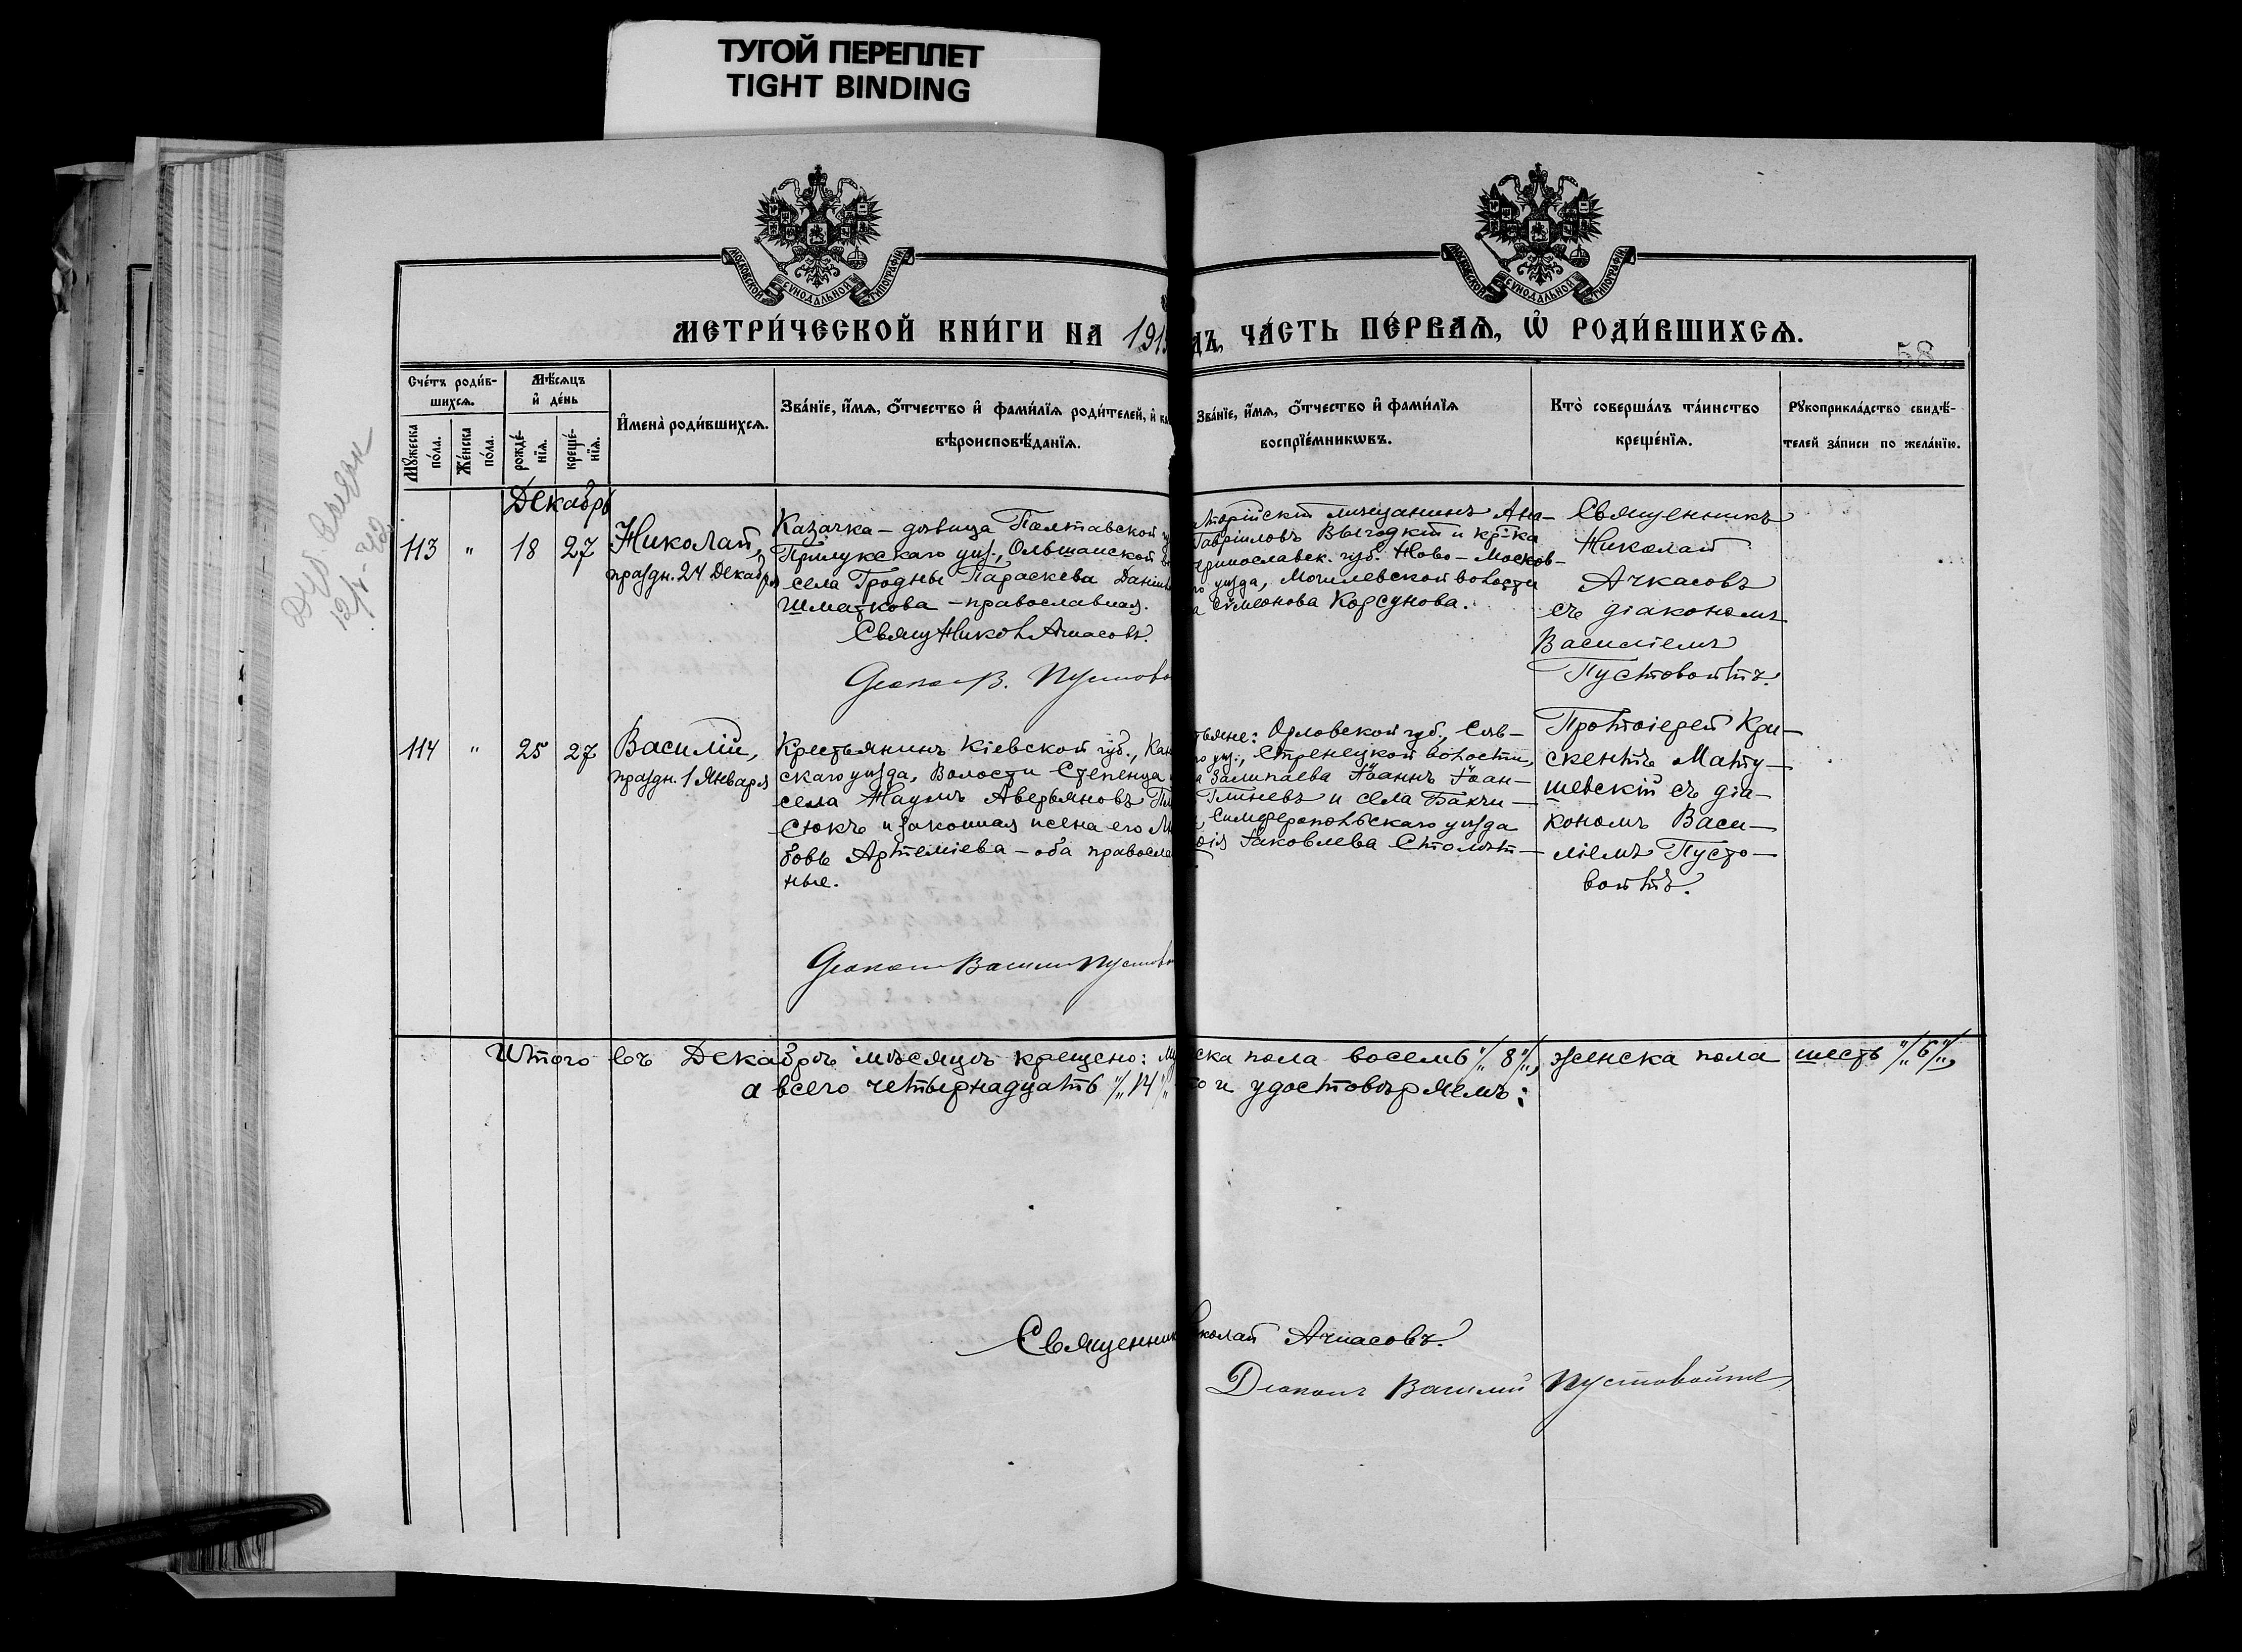 ТУГОЙ ПЕРЕПЛЕТ
TIGHT BINDING
МОСКОВСКОЙ СУНОДАЛЬНОЙ ТИПОГРАФІИ
МОСКОВСКОЙ СУНОДАЛЬНОЙ ТИПОГРАФІИ
МЕТРИ́ЧЕСКОЙ КНИ́ГИ НА 191
дъ, ЧА́СТЬ ПЕ́РВАѦ, Ѽ РОДИ́ВШИХСѦ.
58
Счéтъ роди́в-
шихсѧ.
Мꙋжеска
по́ла.
Же́нска
по́ла.
Мѣ́сяцъ
и҆ де́нь
рожде́-
нїѧ.
креще́-
нїѧ.
И҆менà роди́вшихсѧ.
Зва́нїе, и҆́мѧ, ѻ҆́тчество и҆ фами́лїѧ роди́телей, и҆
вѣроисповѣ́данїѧ.
Зва́нїе, и҆́мѧ, ѻ҆́тчество и҆ фами́лїѧ
воспрїе́мникѡвъ.
Кто̀ соверша́лъ та́инство
креще́нїѧ.
Рꙋкоприкла́дство свидѣ́-
телей за́писи по жела́нїю.
Декабрь
113 " 18 27
Николай,
праздн. 24 Декабря
Казачка - девица Полтавской
Прилукскаго уѣз., Ольшанской
села Гродны Параскева Дани
Шматкова - православная.
Свящ Никол Ачкасовъ.
Діакон В. Пустово
торійскій мещанинъ Ана-
Гавріиловъ Выгодкій и кр-ка
еринославск. губ. Ново-Москов-
го уѣзда, Могилевской волости
а Сѵмеонова Корсунова.
Священникъ
Николай
Ачкасовъ
съ діакономъ
Василіемъ
Пустовойтъ.
114 " 25 27
Василій,
праздн. 1 Января
Крестьянинъ Кіевской губ., Кан
скаго уѣзда, Волости Степенца
села Наумъ Аверьяновъ
сюкъ и законная жена его
бовь Артеміева - оба правосла
ные.
Діакон Василій Пустово
тьяне: Орловской губ., Сѣв-
го уѣз., Стрелецкой волости,
а Залипаева Іоаннъ Іоан-
Глиневъ и села Бахчи-
Симферопольскаго уѣзда
Іаковлева Столѣт-
Протоіерей Кри-
скентъ Мату-
шевскій съ діа-
кономъ Васи-
ліемъ Пусто-
войтъ.
Итого въ Декабрѣ мѣсяцѣ крещено:
ска пола восемь "/„ 8 "/„, женска пола шесть "/„ 6 "/„,
а всего четырнадцать "/„ 14
то и удостовѣряемъ:
Священник
колай Ачкасовъ.
Діаконъ Василій Пустовойтъ